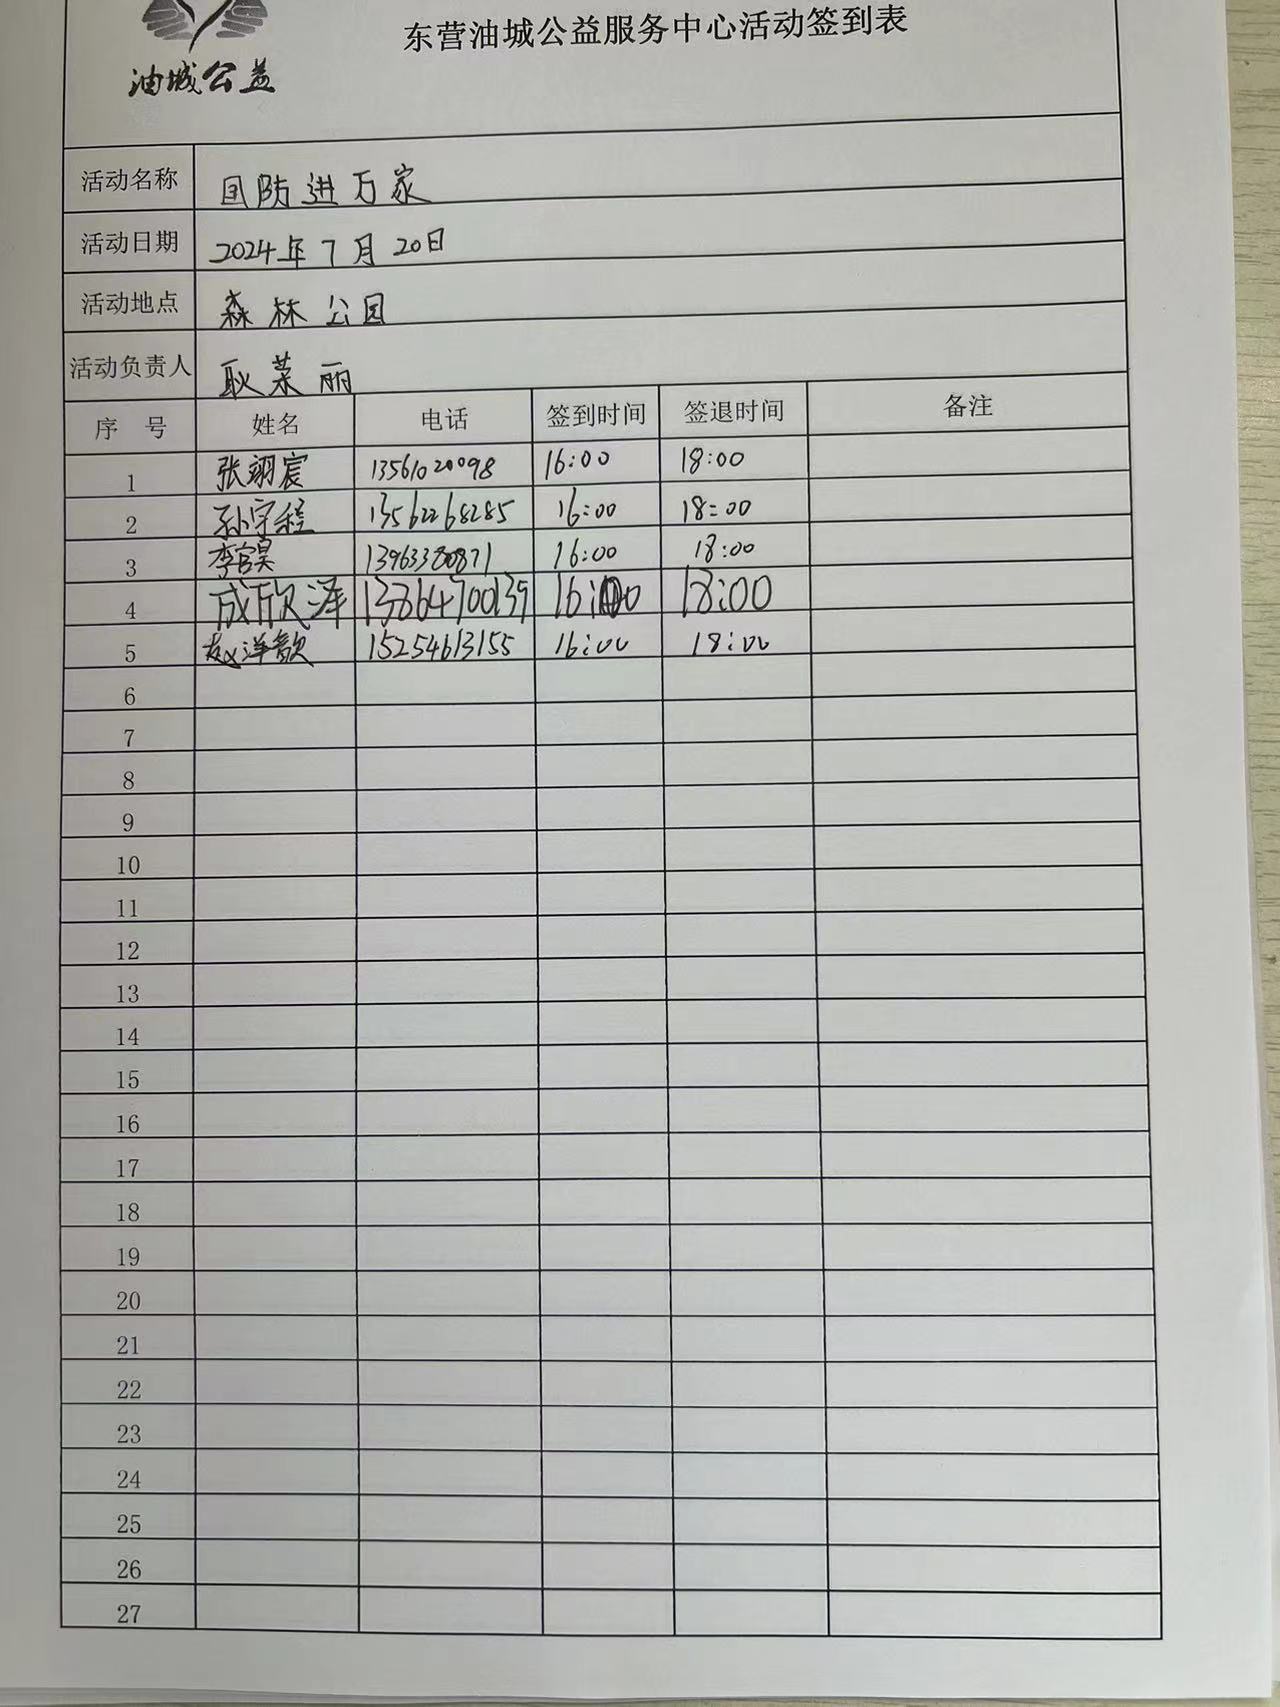 东营油城公益服务中心活动签到表
油城公益
活动名称 国防进万家
活动日期 2024年7月20日
活动地点 森林公园
活动负责人 耿荣丽
序 号 姓名 电话 签到时间 签退时间 备注
1 张翊宸 13561020098 16:00 18:00
2 孙宇程 13562268285 16:00 18:00
3 李官昊 13963380871 16:00 18:00
4 成欣泽 13864700139 16:00 18:00
5 赵洋歆 15254613155 16:00 18:00
6
7
8
9
10
11
12
13
14
15
16
17
18
19
20
21
22
23
24
25
26
27